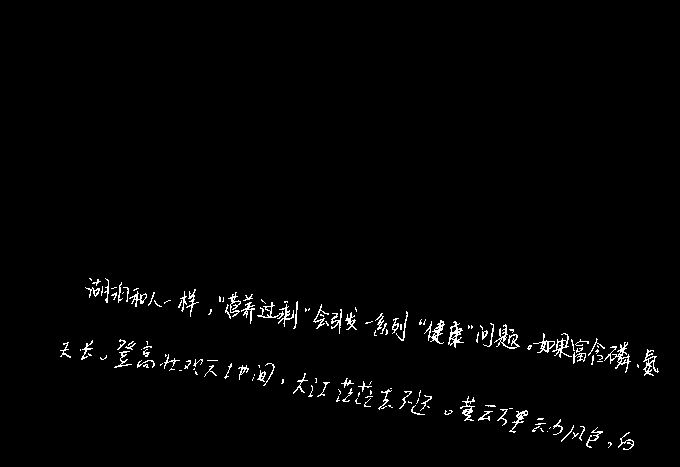 湖泊和人一样，"营养过剩"会引发一系列"健康"问题。如果富含磷、氮
天长。登高壮观天地间，大江茫茫去不还。黄云万里动风色，白